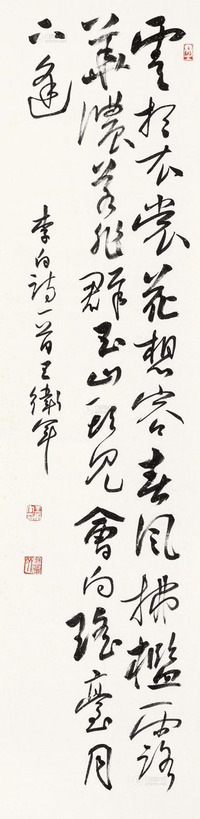 雲想衣裳花想容春風拂檻露
華濃若非群玉山頭見會向瑤臺月
下逢
李白詩一首王衛軍